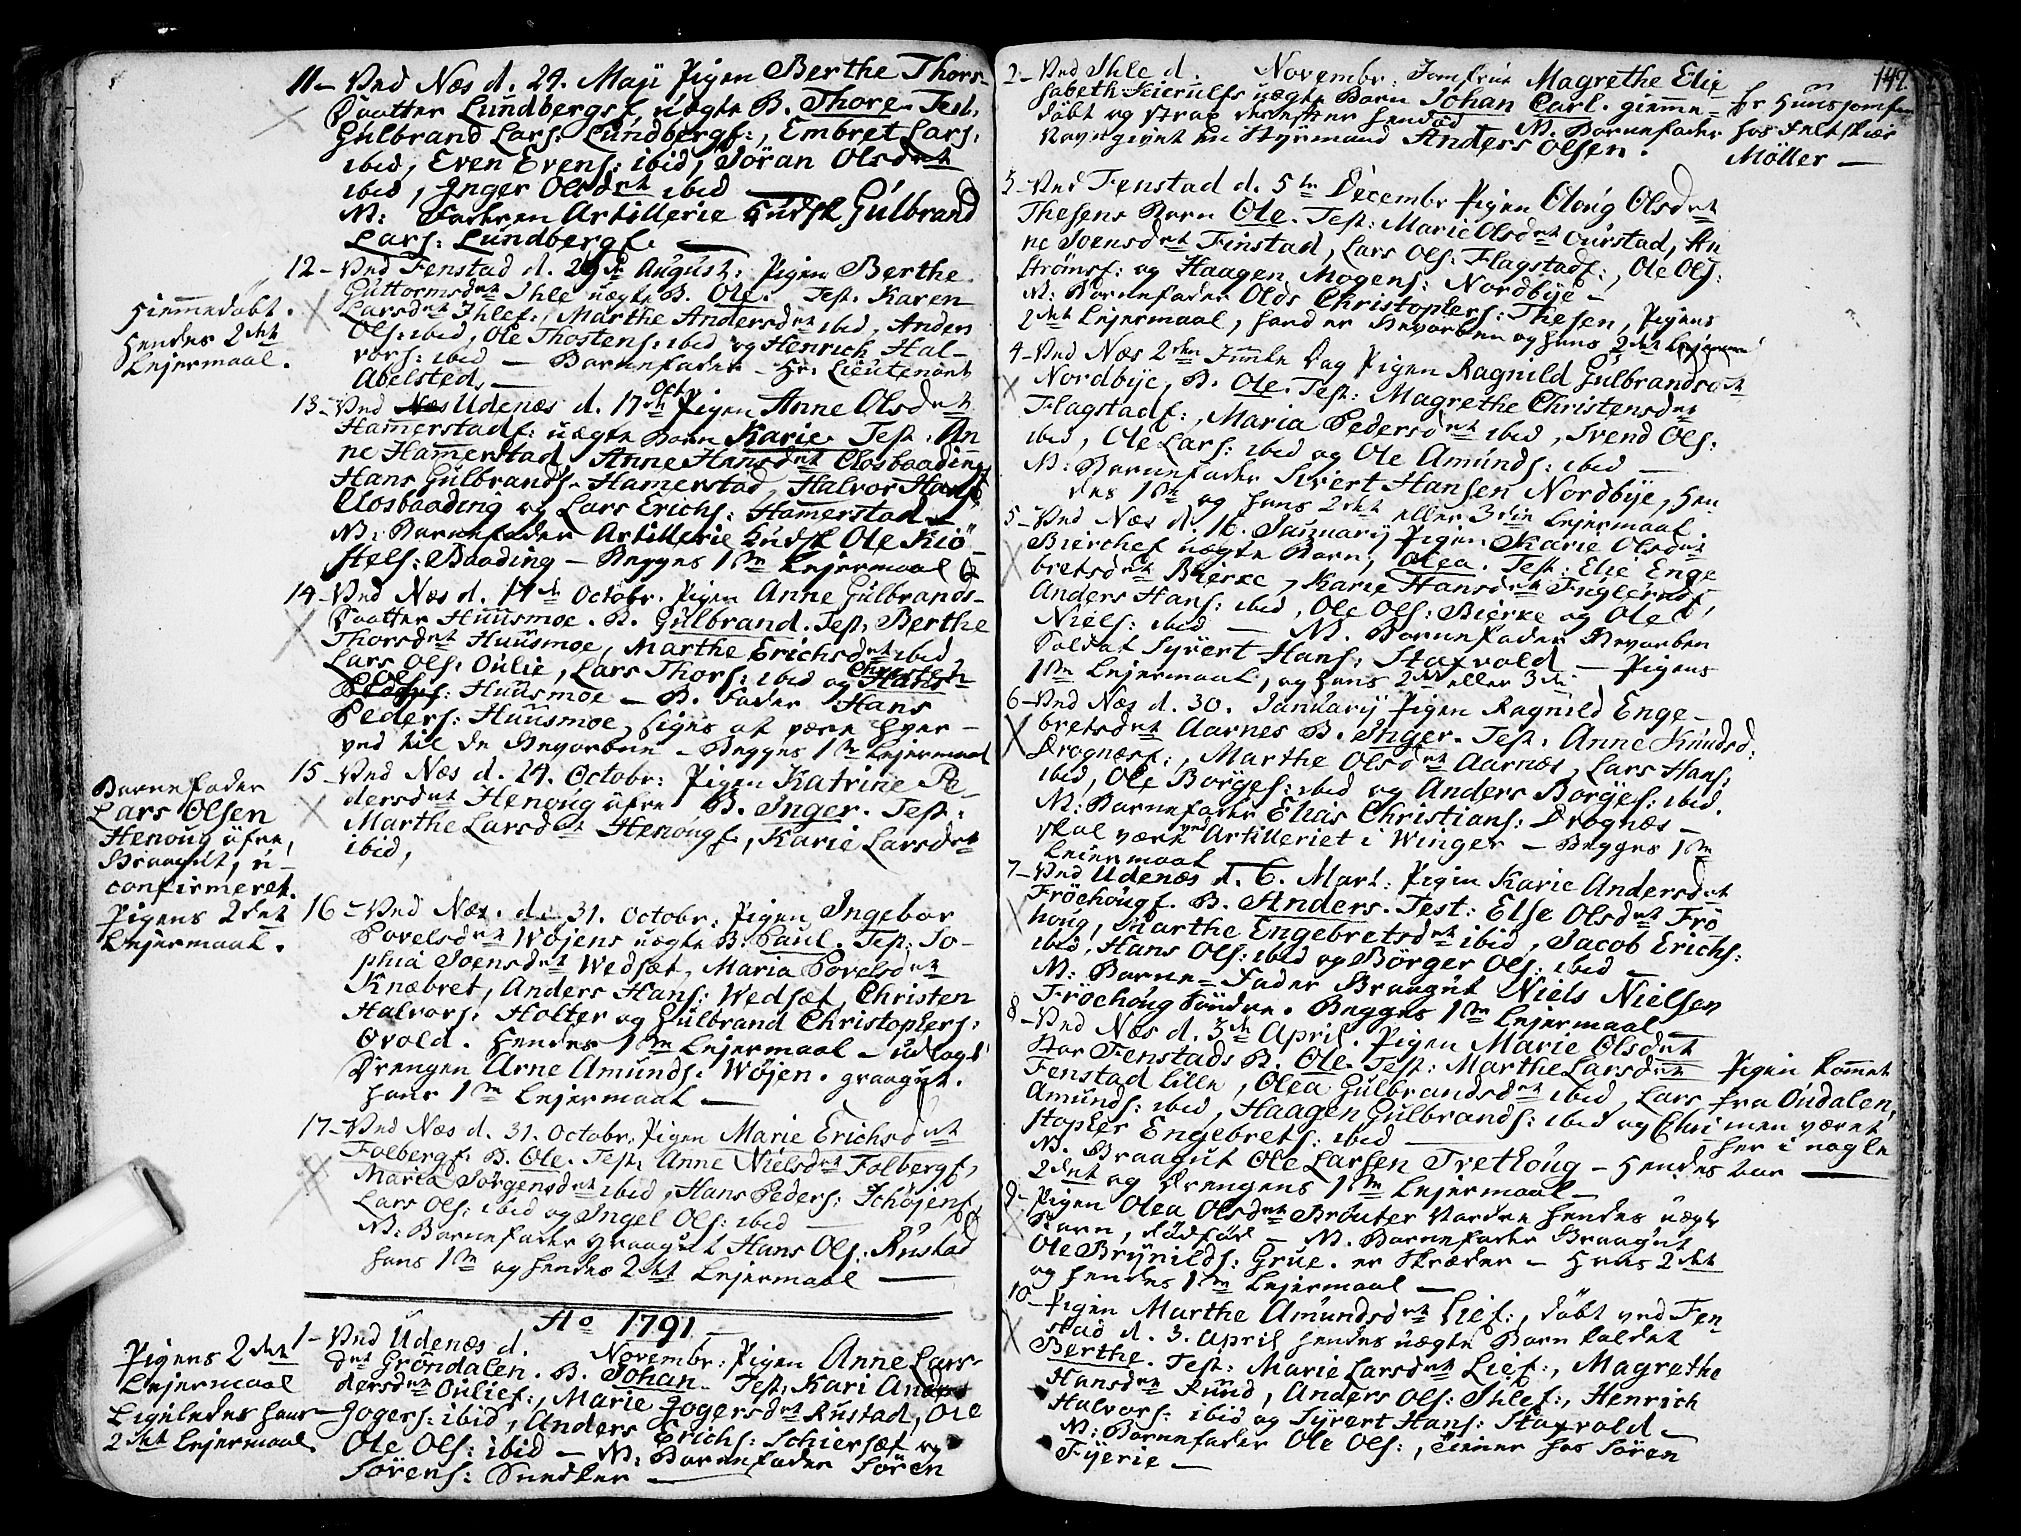 11 - Ved Næs d. 24. Maji Pigen Berthe Thors-
Daatter Lundbergsf. uægte B. Thore. Test.
Gulbrand Lars: Lundbergf:, Embret Lars:
ibid, Even Evens: ibid, Söran Olsdat
ibid, Inger Olsdat ibid
N: Faderen Artillerie Kudsk Gulbrand
Lars: Lundbergf.
12 - Ved Fenstad d. 29de August: Pigen Berthe
Guttormsdat Ihle uægte B. Ole. Test. Karen
Larsdat Ihlef:, Marthe Andersdat ibid, Anders
Ols: ibid, Ole Thostens: ibid og Henrich Hal-
vors: ibid — Barnefader - Hr: Lieutenant
Abelsted.
Hiemmedøbt.
Hendes 2det
Lejermaal.
13 - Ved Udenæs d. 17de Octb Pigen Anne Olsdat
Hamerstadf: uægte Barn Karie. Test. An
ne Hamerstad, Anne Hansdat Closbaading
Hans Gulbrands. Hamerstad, Halvor Hans
Closbaading og Lars Erichs: Hamerstad
N: Barnefader Artillerie Kudsk Ole Kiö
stels: Baading - Begges 1ste Lejermaal
14 - Ved Næs d. 17de Octobr. Pigen Anne Gulbrands-
Daatter Huusmoe. B. Gulbrand. Test, Berthe
Thorsdat Huusmoe, Marthe Erichsdat ibid
Lars Ols: Oulie, Lars Thors: ibid og Christen
Huusmoe - B. Fader Hans
Peders: Huusmoe, siges at være hver-
ved til de Hevorbne - Begges 1ste Lejermaal
15 - Ved Næs d. 24. Octobr: Pigen Katrine Pe-
dersdat Henoug øfre B. Inger. Test:
Marthe Larsdat Henougf., Karie Larsdat
ibid,
Barnefader
Lars Olsen
Henoug øfre,
Braagut, u-
confirmeret.
Pigens 2det
Lejermaal.
16 - Ved Næs. d. 31. Octobr: Pigen Ingebor
Povelsdat Wøjens uægte B. Paul. Test: So-
phia Joensdat Wedsæt, Maria Povelsdat
Knæbret, Anders Hans: Wedsæt, Christen
Halvors: Holter og Gulbrand Christophers:
Ovold. Hendes 1ste Lejermaal - udlagt
Drengen Arne Amunds: Wøjen. graagut.
hans 1ste Lejermaal
17 - Ved Næs d. 31. Octobr. Pigen Marie Erichsdat
Folbergf. B. Ole. Test, Anne Nielsdat Folbergf,
Maria Jörgensdat ibid, Hans Peders: Schøjenf
Lars Ols: ibid og Ingel Ols: ibid
N: Barnefader graagut Hans Ols: Rustad
hans 1ste og hendes 2det Lejermaal
Ao 1791
1 - Ved Udenæs d. Novembr: Pigen Anne Lars-
dat Gröndalen. B. Johan. Test, Kari Anders
dersdat Oulief:, Marie Jogersdat Rustad, Ole
Jogers: ibid, Anders Erichs: Schiersæt og
Ole Ols: ibid — N: Barnefader Sören
Sörens: Snedker
Pigens 2det
Lejermaal
Ligeledes hans
2det Lejermaal.
147.
2 - Ved Ihle d. Novembr: Jomfrue Magrethe Elie
sabeth Kierulfs uægte Barn Johan Carl. giemme-
døbt og strax derefter hendød N. Barnefader
Navngivet en Styrmand Anders Olsen.
Er Huusjomfru
hos Feltskiær
Møller
3 - Ved Fenstad d. 5te Decembr Pigen Oloug Olsdat
Thesens Barn Ole. Test: Marie Olsdat Ourstad, An
ne Joensdat Finstad, Lars Ols: Flagstadf:, Ole Ols:
Strømsf: og Haagen Mogens: Nordbye
N: Barnefader Olds Christophers: Thesen, Pigens
2det Lejermaal, hand er Hevorben og hans 2det
4 - Ved Næs 2den Juule Dag Pigen Ragnild Gulbrandsdat
Nordbye, B. Ole. Test: Magrethe Christensdat
Flagstadf:, Maria Pedersdat ibid, Svend Ols:
ibid, Ole Lars: ibid og Ole Amunds: ibid
N: Barnefader Sivert Hansen Nordbye, Hen
des 1ste og hans 2det eller 3die Lejermaal
5 - Ved Næs d. 16. Januarij Pigen Karie Olsdat
Bierchef uægte Barn, Olea. Test: Elie Enge
bretsdat Bierke, Karie Hansdat Fuglerudf,
Anders Hans: ibid, Ole Ols: Bierke og Ole
Niels: ibid — N. Barnefader Hevorben
Soldat Syvert Hans: Staxvold — Pigens
1ste Lejermaal, og hans 2det eller 3die
6 - Ved Næs d. 30. Januarij Pigen Ragnild Enge-
bretsdat Aarnes B. Inger. Test, Anne Knudsd:
Drognæsf:, Marthe Olsdat Aarnæs, Lars Hans:
ibid, Ole Borges: ibid og Anders Borges: ibid.
N: Barnefader Elias Christians: Drognæs
skal være ved Artilleriet i Winger - Begges 1ste
Lejermaal
7 - Ved Udenæs d. 6. Mart: Pigen Karie Andersdat
Fröchougf. B. Anders. Test: Else Olsdat Frö
houg, Marthe Engebretsdat ibid, Jacob Erichs:
ibid, Hans Ols: ibid og Börger Ols: ibid
N: Barne-Fader Braagut Niels Nielsen
Fröchoug Söndre. Begges 1ste Lejermaal
8 - Ved Næs d. 3de April. Pigen Marie Olsdat
Stor Fenstads B. Ole. Test: Marthe Larsdat
Fenstad lille, Olea Gulbrandsdat ibid, Lars
Amunds: ibid, Haagen Gulbrands: ibid og Chri
stopher Engebrets: ibid
N. Braagut Ole Larsen Trethoug - Hendes
2det og Drengens 1ste Lejermaal
Pigen kommet
fra Oudalen,
men været
her i nogle
Aar
9 - Pigen Olea Olsdat Brøuter Nordre hendes uægte
Barn, dødfød — N. Barnefader Braagut
Ole Brynilds: Grue. er Skræder - Hans 2det
og hendes 1ste Lejermaal
10 - Pigen Marthe Amundsdat Lief:, døbt ved Fen
stad d. 3. April hendes uægte Barn kaldet
Berthe. Test: Marie Larsdat Lief:, Magrethe
Hansdat Ruud, Anders Ols: Ihlef:, Henrich
Halvors: ibid og Syvert Hans: Staxvold
N: Barnefader Ole Ols:, tiener hos Sören
Fyerie